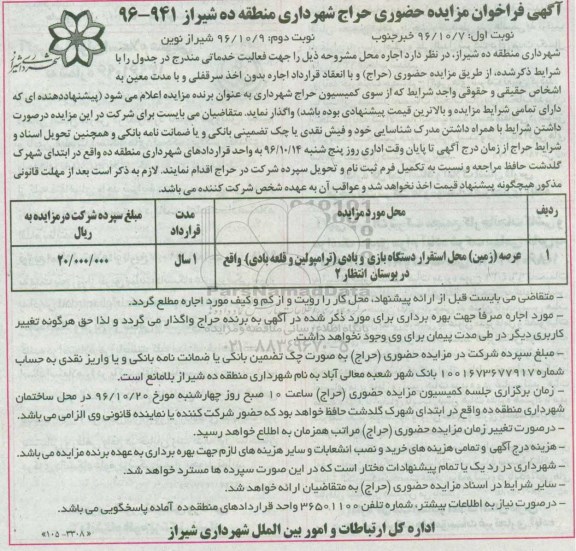 آگهی فراخوان مزایده حضوری حراج شهرداری منطقه ده شیراز ۹۴۱-۹۶
نوبت اول: ۹۶/۱۰/۷ خبرجنوب
نوبت دوم: ۹۶/۱۰/۹ شیراز نوین
شهرداری منطقه ده شیراز، در نظر دارد اجاره محل مشروحه ذیل را جهت فعالیت خدماتی مندرج در جدول را با
شرایط ذکرشده، از طریق مزایده حضوری (حراج) و با انعقاد قرارداد اجاره بدون اخذ سرقفلی و با مدت معین به
اشخاص حقیقی و حقوقی واجد شرایط که از سوی کمیسیون حراج شهرداری به عنوان برنده مزایده اعلام می شود (پیشنهاددهنده ای که
دارای تمامی شرایط مزایده و بالاترین قیمت پیشنهادی بوده باشد) واگذار نماید. متقاضیان می بایست برای شرکت در این مزایده درصورت
داشتن شرایط با همراه داشتن مدرک شناسایی خود و فیش نقدی یا چک تضمینی بانکی و یا ضمانت نامه بانکی و همچنین تحویل اسناد و
شرایط حراج از زمان درج آگهی تا پایان وقت اداری روز پنج شنبه ۹۶/۱۰/۱۴ به واحد قراردادهای شهرداری منطقه ده واقع در ابتدای شهرک
گلدشت حافظ مراجعه و نسبت به تکمیل فرم ثبت نام و تحویل سپرده شرکت در حراج اقدام نمایند. لازم به ذکر است بعد از مهلت قانونی
مذکور هیچگونه پیشنهاد قیمت اخذ نخواهد شد و عواقب آن به عهده شخص شرکت کننده می باشد.
ردیف
محل مورد مزایده
مدت قرارداد
مبلغ سپرده شرکت در مزایده به ریال
۱
عرصه (زمین) محل استقرار دستگاه بازی و بادی (ترامپولین و قلعه بادی) واقع
در بوستان انتظار ۲
۱ سال
۲۰/۰۰۰/۰۰۰
- متقاضی می بایست قبل از ارائه پیشنهاد، محل کار را رویت و از کم و کیف مورد اجاره مطلع گردد.
- مورد اجاره صرفاً جهت بهره برداری برای مورد ذکر شده در آگهی به برنده حراج واگذار می گردد و لذا حق هرگونه تغییر
کاربری دیگر در طی مدت پیمان برای وی وجود نخواهد داشت.
- مبلغ سپرده شرکت در مزایده حضوری (حراج) به صورت چک تضمین بانکی یا ضمانت نامه بانکی و یا واریز نقدی به حساب
شماره ۱۰۰۱۶۷۳۶۷۷۹۱۷ بانک شهر شعبه معالی آباد به نام شهرداری منطقه ده شیراز بلامانع است.
- زمان برگزاری جلسه کمیسیون مزایده حضوری (حراج) ساعت ۱۰ صبح روز چهارشنبه مورخ ۹۶/۱۰/۲۰ در محل ساختمان
شهرداری منطقه ده واقع در ابتدای شهرک گلدشت حافظ خواهد بود که حضور شرکت کننده یا نماینده قانونی وی الزامی می باشد.
- درصورت تغییر زمان مزایده حضوری (حراج) مراتب همزمان به اطلاع خواهد رسید.
- هزینه درج آگهی و تمامی هزینه های خرید و نصب انشعابات و سایر هزینه های لازم جهت بهره برداری به عهده برنده مزایده می باشد.
- شهرداری در رد یک یا تمام پیشنهادات مختار است که در این صورت سپرده ها مسترد خواهد شد.
- سایر شرایط در اسناد مزایده حضوری (حراج) به متقاضیان ارائه خواهد شد.
- درصورت نیاز به اطلاعات بیشتر، شماره تلفن ۳۶۵۰۱۱۰۰ واحد قراردادهای منطقه ده آماده پاسخگویی می باشد.
اداره کل ارتباطات و امور بین الملل شهرداری شیراز
«۱۰۵-۳۳۰۸»